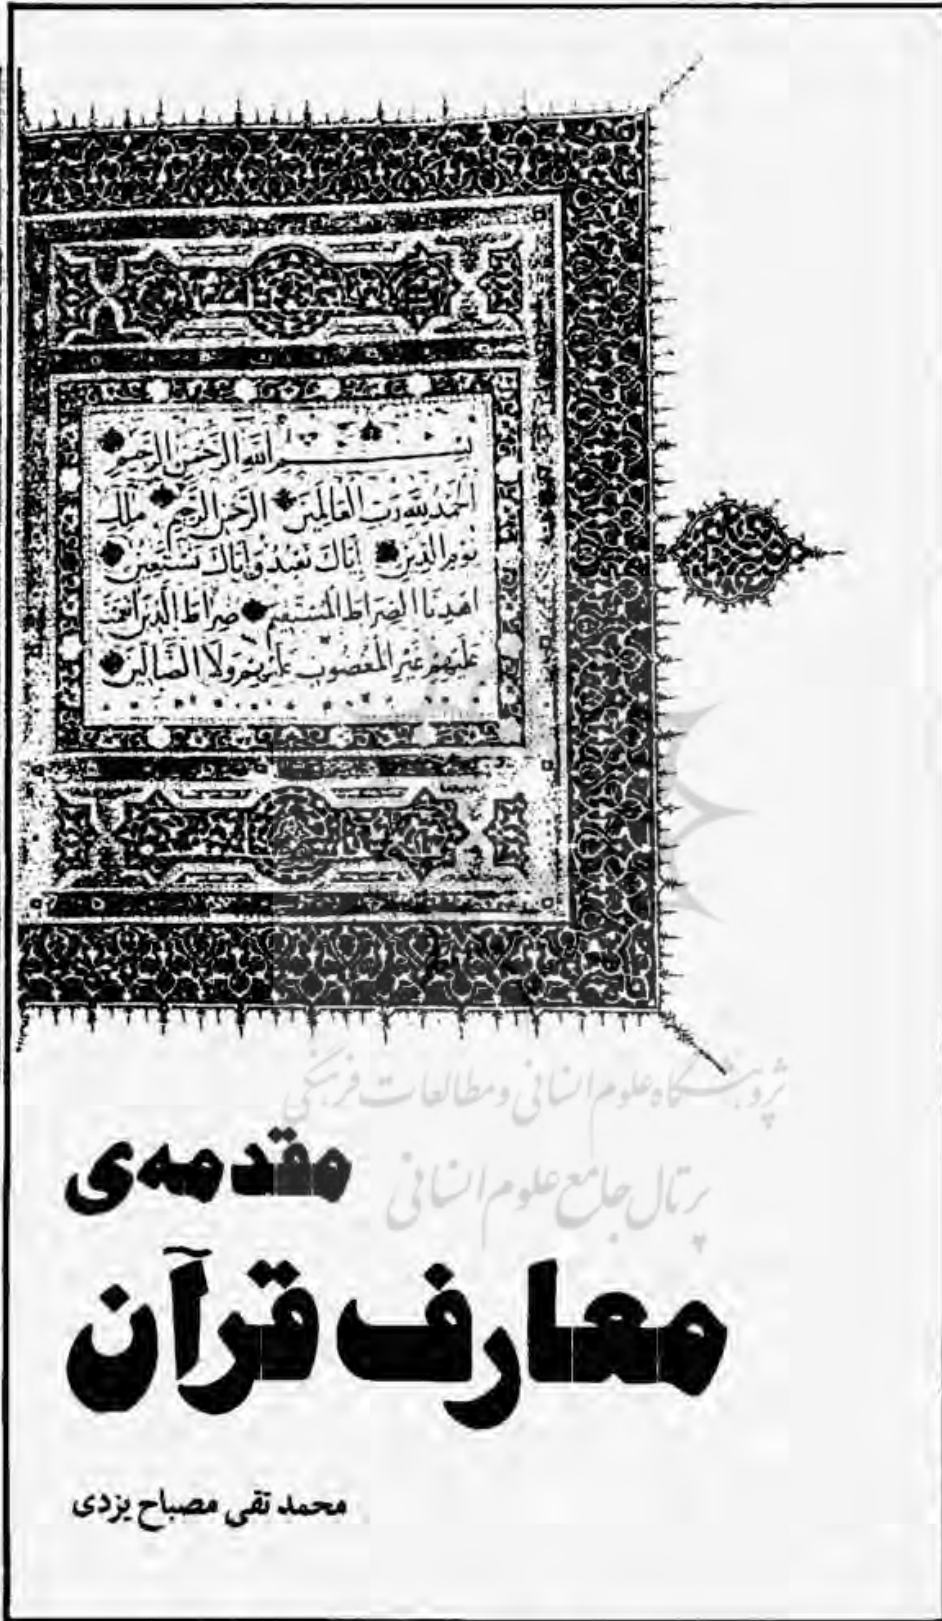 بسم الله الرحمن الرحيم
الحمد لله رب العالمين الرحمن الرحيم ملك
يوم الدين إياك نعبد وإياك نستعين
اهدنا الصراط المستقيم صراط الذين أنعمت
عليهم غير المغضوب عليهم ولا الضالين
پژوهشگاه علوم انسانی و مطالعات فرهنگی
مقدمه‌ی
پرتال جامع علوم انسانی
معارف قرآن
محمد تقی مصباح یزدی